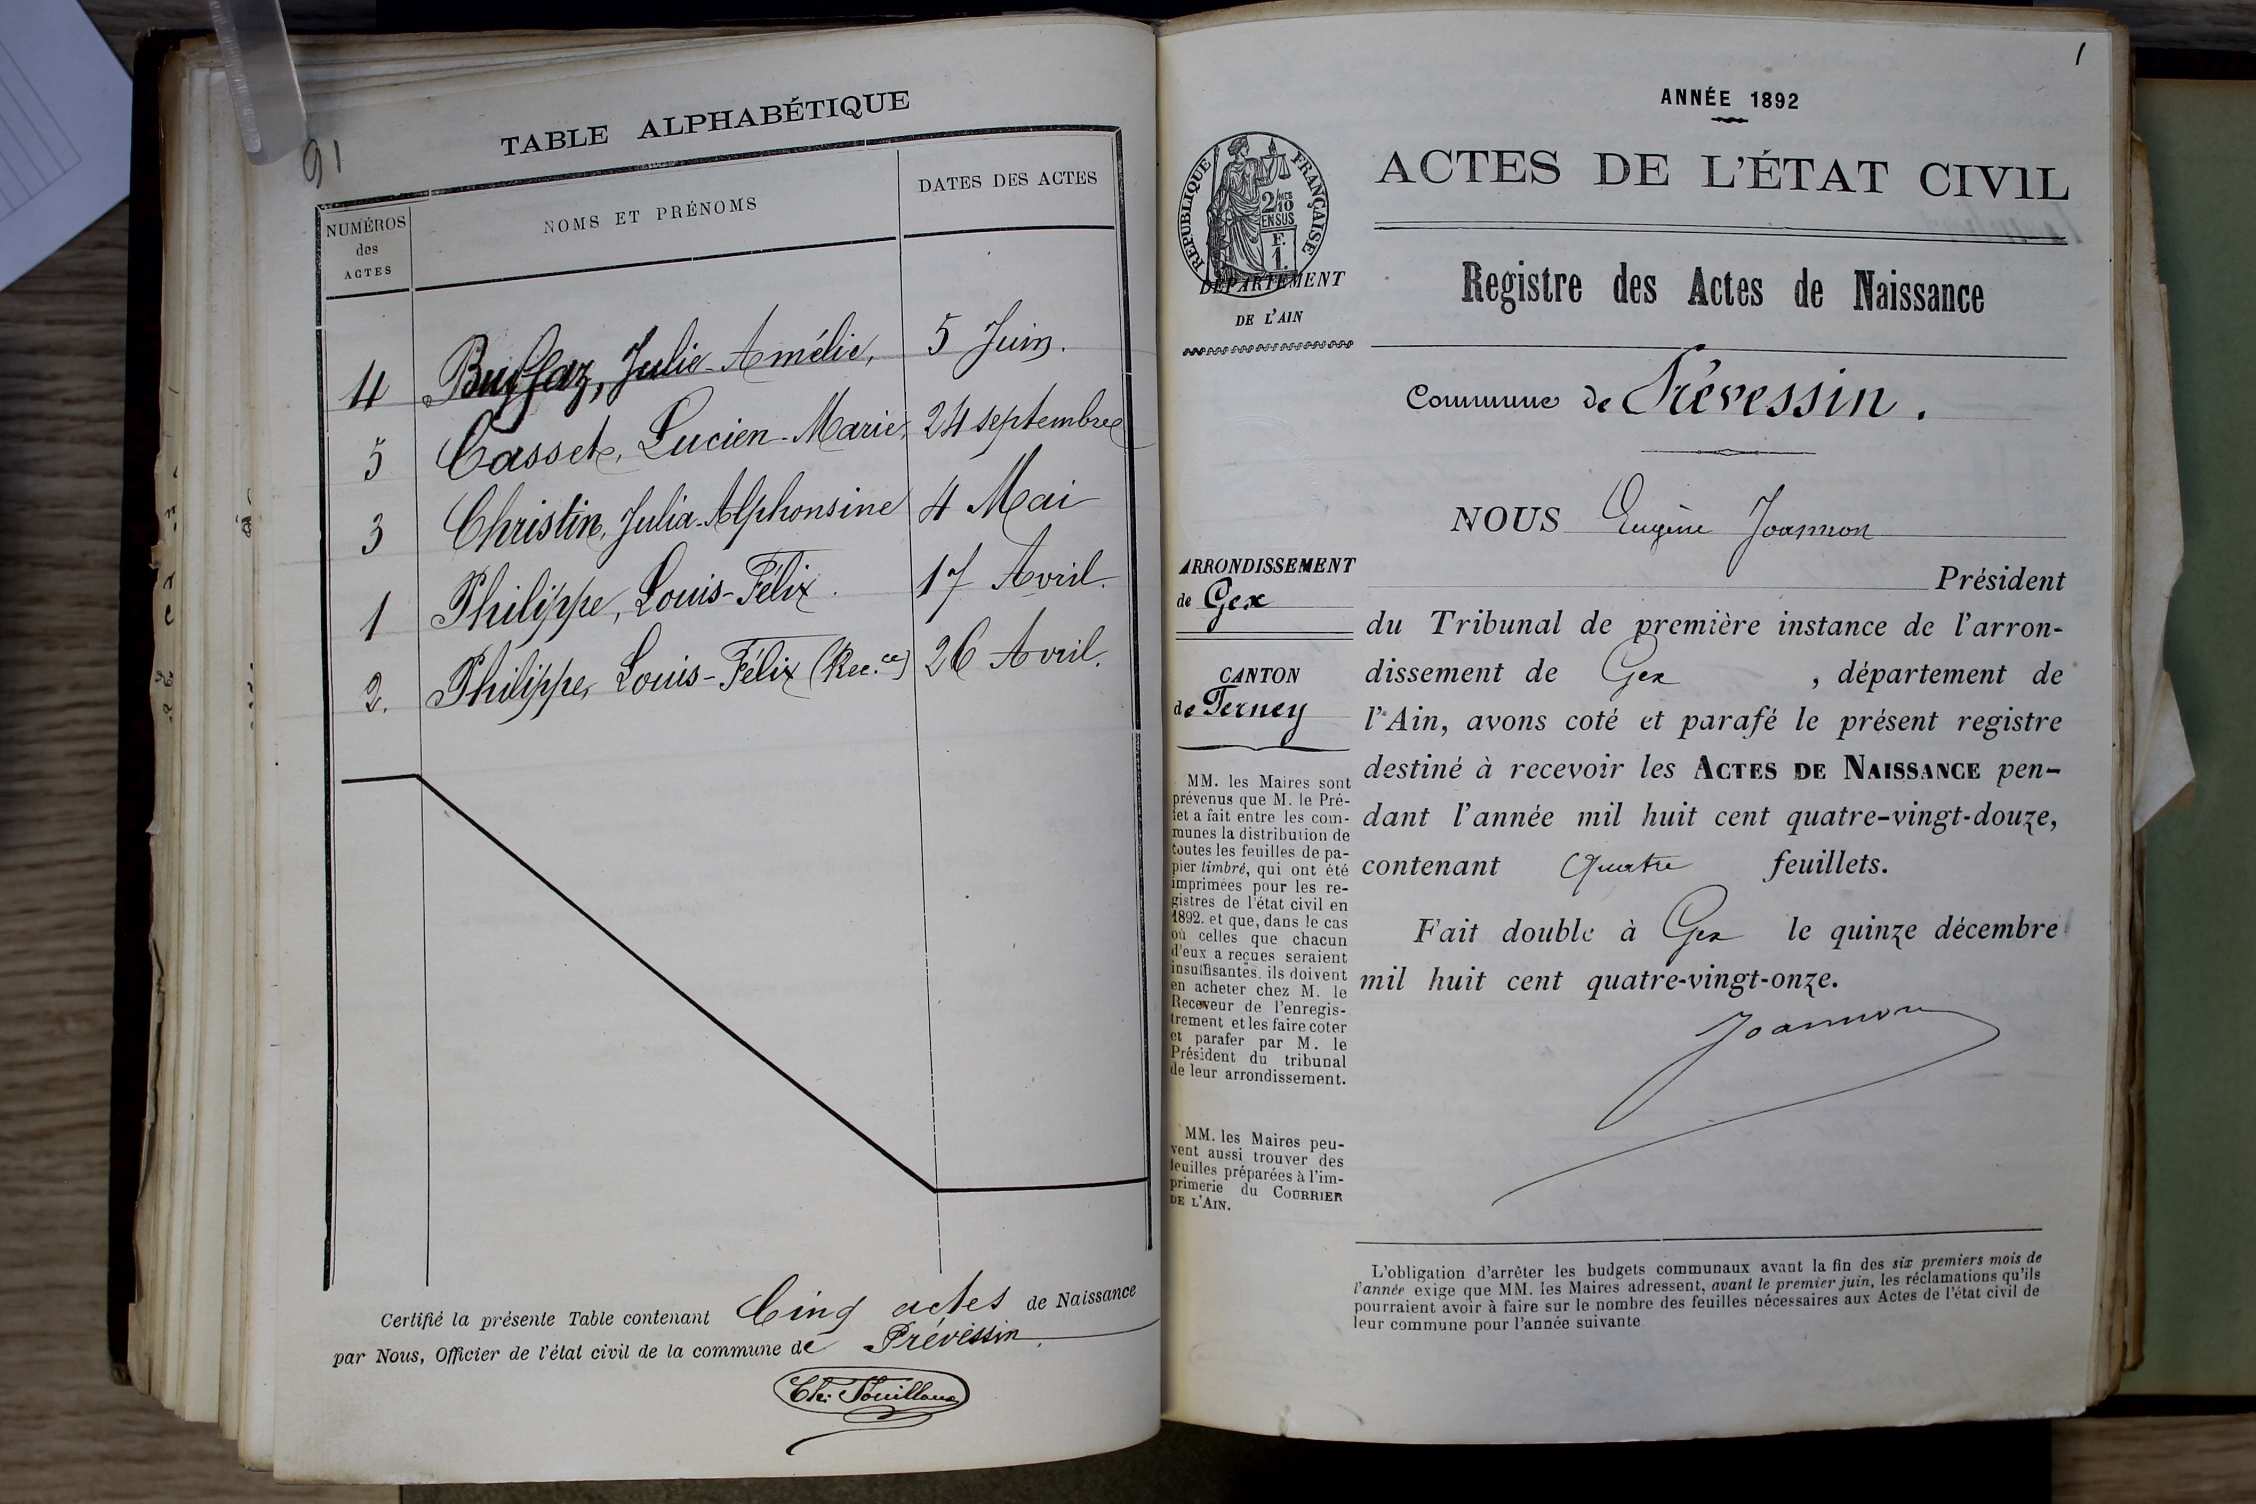 91
TABLE ALPHABÉTIQUE
NUMÉROS des ACTES
NOMS ET PRÉNOMS
DATES DES ACTES
4 Buffaz, Julie-Amélie, 5 Juin.
5 Casset, Lucien-Marie, 24 septembre
3 Christin, Julia-Alphonsine 4 Mai
1 Philippe, Louis-Félix. 17 Avril.
2. Philippe, Louis-Félix (Rec.ce) 26 Avril.
Certifié la présente Table contenant Cinq actes de Naissance
par Nous, Officier de l'état civil de la commune de Prévessin.
1
ANNÉE 1892
RÉPUBLIQUE FRANÇAISE
2/10 EN SUS
F. 1.
DÉPARTEMENT
DE L'AIN
ACTES DE L'ÉTAT CIVIL
Registre des Actes de Naissance
Commune de Prévessin.
ARRONDISSEMENT
de Gex
CANTON
de Ferney
MM. les Maires sont
prévenus que M. le Pré-
fet a fait entre les com-
munes la distribution de
toutes les feuilles de pa-
pier timbré, qui ont été
imprimées pour les re-
gistres de l'état civil en
1892. et que, dans le cas
où celles que chacun
d'eux a reçues seraient
insuffisantes, ils doivent
en acheter chez M. le
Receveur de l'enregis-
trement et les faire coter
et parafer par M. le
Président du tribunal
de leur arrondissement.
MM. les Maires peu-
vent aussi trouver des
feuilles préparées à l'im-
primerie du COURRIER
DE L'AIN.
NOUS Eugène Joannon
Président
du Tribunal de première instance de l'arron-
dissement de Gex , département de
l'Ain, avons coté et parafé le présent registre
destiné à recevoir les ACTES DE NAISSANCE pen-
dant l'année mil huit cent quatre-vingt-douze,
contenant Quatre feuillets.
Fait double à Gex le quinze décembre
mil huit cent quatre-vingt-onze.
Joannon
L'obligation d'arrêter les budgets communaux avant la fin des six premiers mois de
l'année exige que MM. les Maires adressent, avant le premier juin, les réclamations qu'ils
pourraient avoir à faire sur le nombre des feuilles nécessaires aux Actes de l'état civil de
leur commune pour l'année suivante